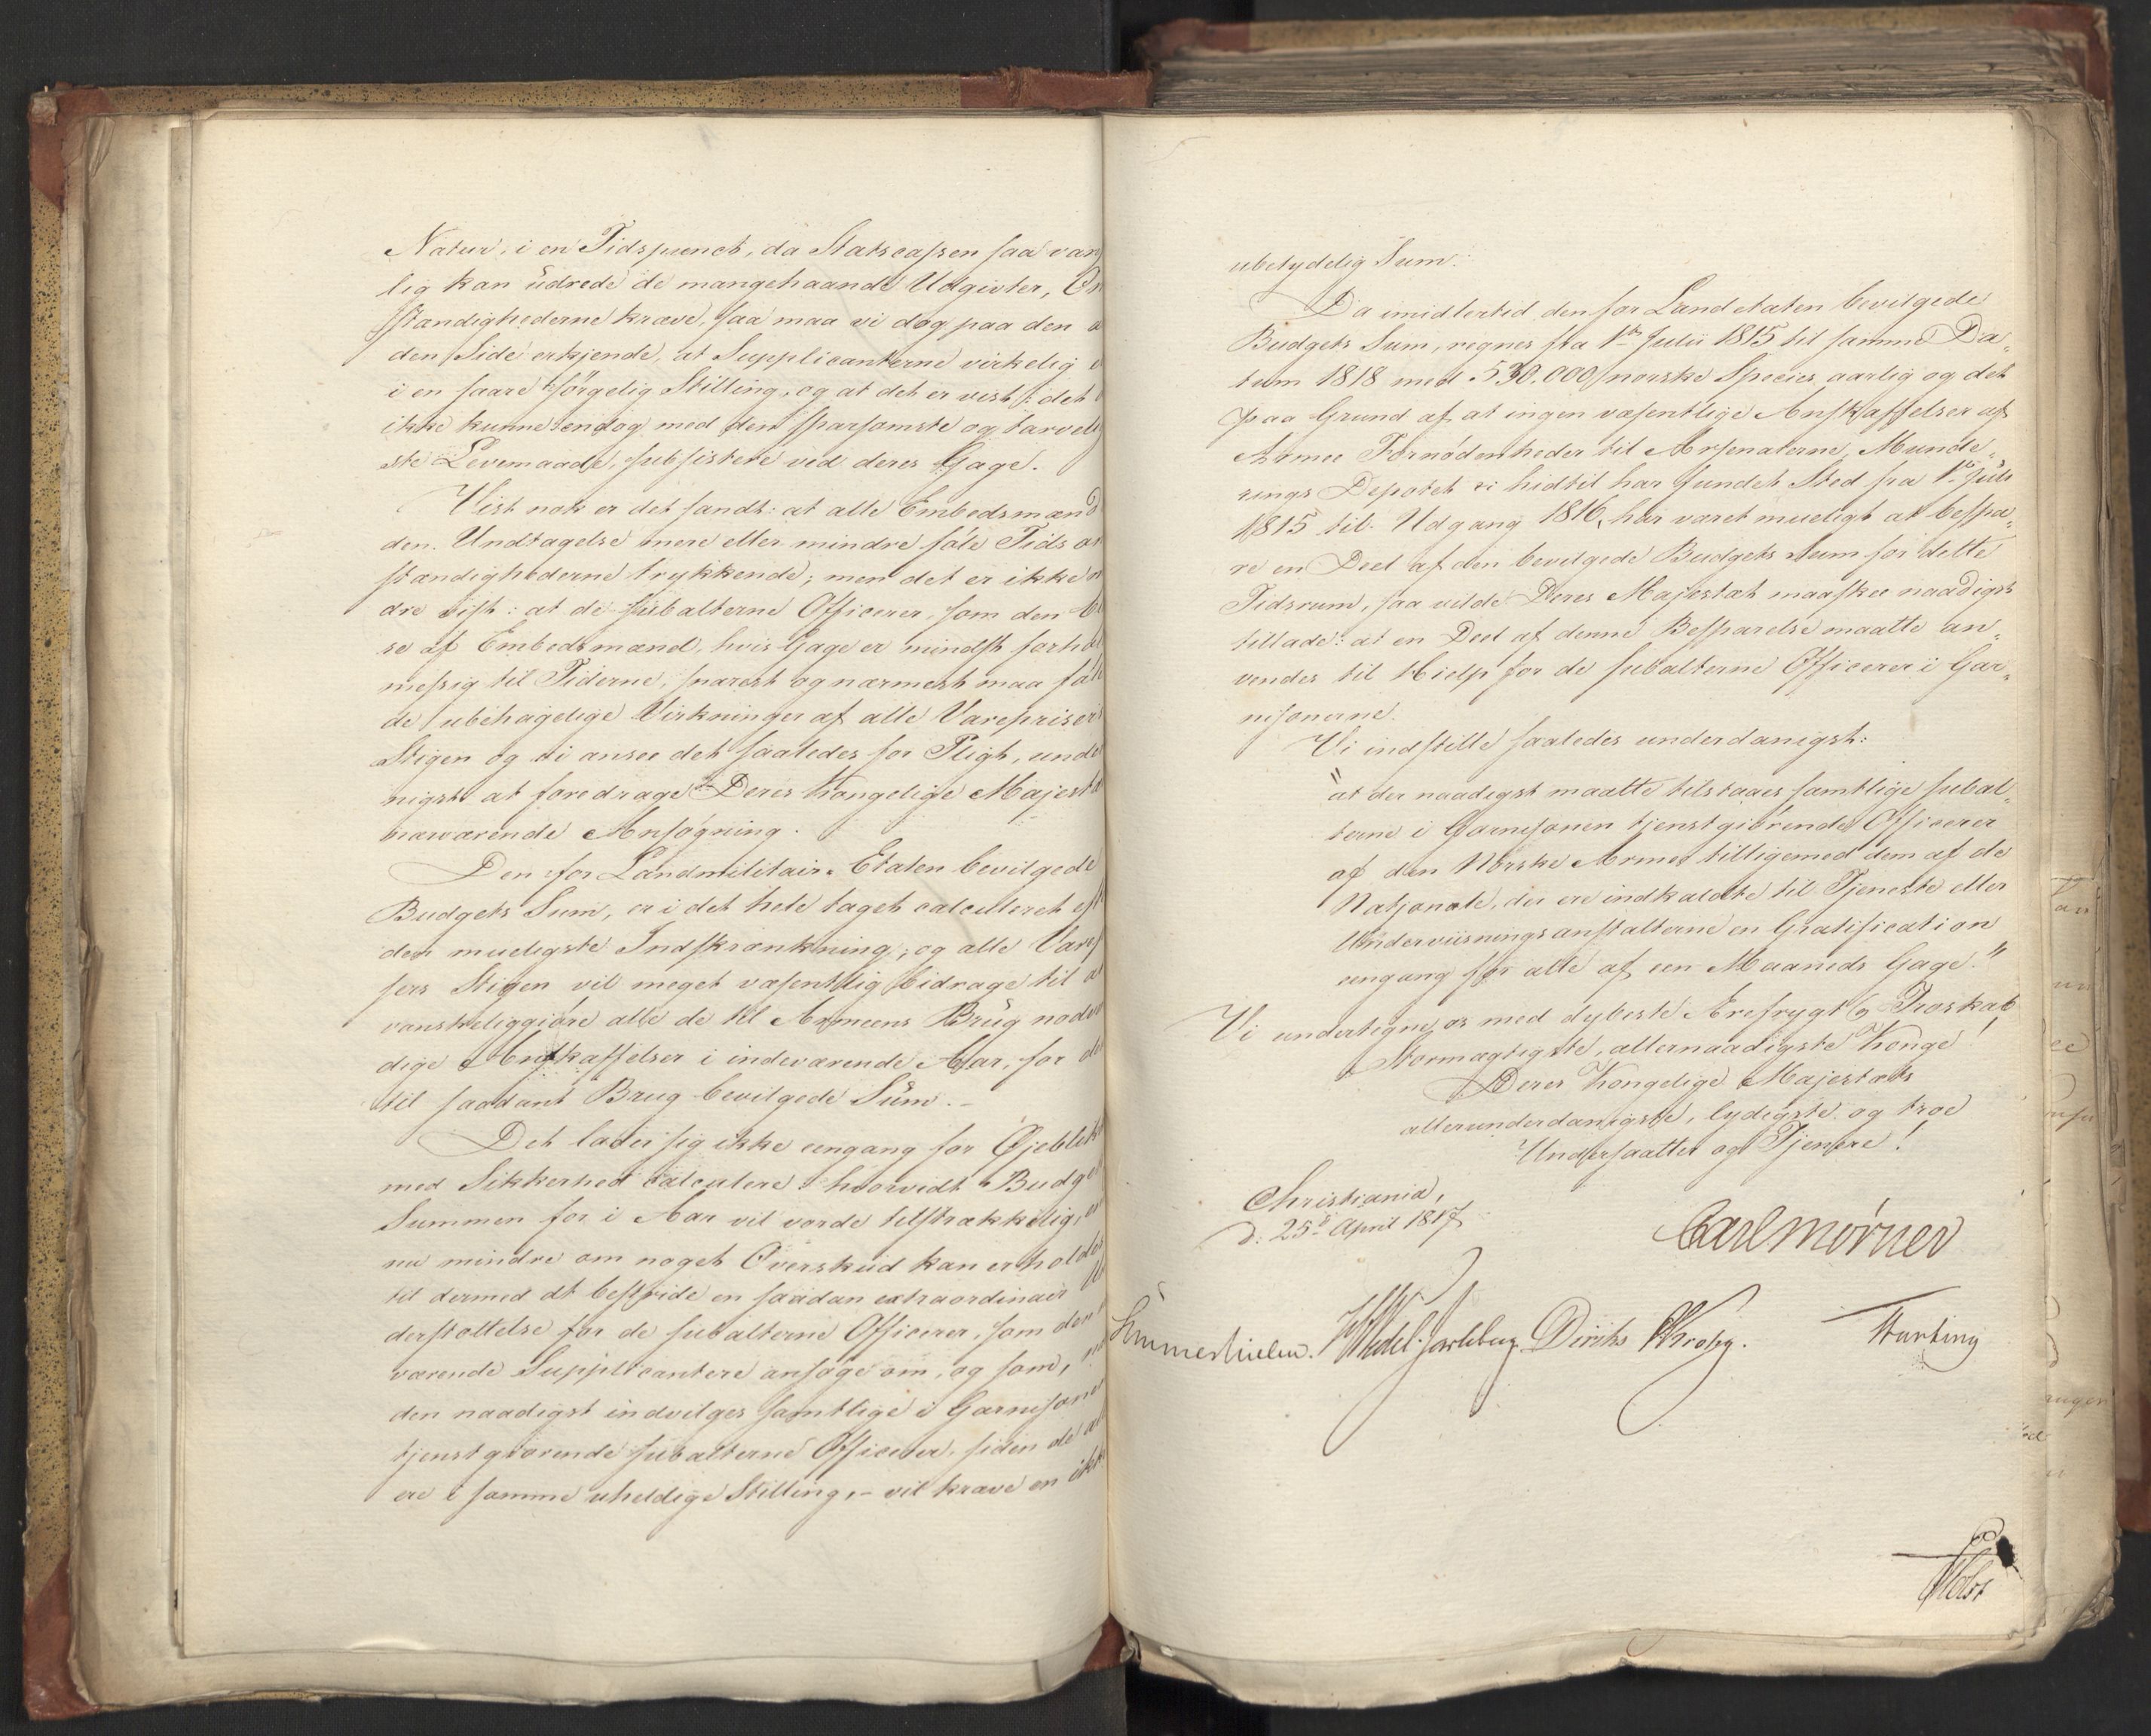 Natur, i en Tidspunct, da Statscassen saa van
lig kan udrede de mangehaande Udgivter, Om
stændighederne kræve, saa maa vi dog paa den a
den Side erkjende, at Supplicanterne virkelig e
i en saare sörgelig Stilling, og at det er vist: det
ikke kunne endog med den sparsomste og tarvelig
ste Levemaade, subsistere ved deres Gage.
Vist nok er det sandt: at alle Embedsmænd
den Undtagelse mere eller mindre föle Tids om
stændighederne trykkende; men det er ikke m
dre vist: at de subalterne Officerer, som den
se af Embedsmænd, hvis Gage er mindst forhol
messig til Tiderne, snarest og nærmest maa föle
de ubehagelige Virkninger af alle Varepriser
Stigen og vi ansee det saaledes for Pligt, unde
nigst at foredrage Deres Kongelige Majestæ
nærværende Ansögning.
Den for Landmilitair-Etaten bevilgede
Budgets Sum, er i det hele taget calculeret eft
den mueligste Indskrænkning; og alle Vare
sers Stigen vil meget væsentlig bidrage til at
vanskeliggiöre alle de til Armeens Brug nödven
dige Anskaffelser i indeværende Aar, for de
til saadant Brug bevilgede Sum.-
Det lader sig ikke eengang for Öjeblikk
med Sikkerhed calculere hvorvidt Budget
Summen for i Aar vil vorde tilstrækkelig, en
nu mindre om noget Overskud kan erholdes
til dermed at bestride en saadan extraordinair Un
derstöttelse for de subalterne Officerer, som den
værende Supplicantere ansöge om, og som,
den naadigst indvilges samtlige i Garnisonen
tjenstgiörende subalterne Officerer, siden de al
ere i samme uheldige Stilling,- vil kræve en ikke
ubetydelig Sum.
Da imidlertid den for Landetaten bevilgede
Budgets Sum, regnes fra 1ste Julii 1815 til samme Da-
tum 1818 med 530.000 norske Species aarlig og det
paa Grund af at ingen væsentlige Anskaffelser af
Armee Fornödenheder til Arsenalerne, Munde-
rings Depotet &c hidtil har fundet Sted fra 1te Juli
1815 til Udgang 1816, har været mueligt at bespa-
re en Deel af den bevilgede Budgets Sum for dette
Tidsrum, saa vilde Deres Majestæt maaskee naadigst
tillade: at en Deel af denne Besparelse maatte an-
vendes til Hielp for de subalterne Officerer i Gar-
nisonerne.
Vi indstille saaledes underdanigst:
"at der naadigst maatte tilstaaes samtlige subal-
terne i Garnisonen tjenstgiörende Officerer
af den Norske Armee tilligemed dem af de
Natjonale, der ere indkaldte til Tjeneste eller
Underviisningsanstalterne en Gratification
eengang for alle af een Maaneds Gage."
Vi undertegne os med dybeste Ærefrygt og Troskab
Stormægtigste, allernaadigste Konge!
Deres Kongelige Majestæts
allerunderdanigste, lydigste og troe
Undersaatter og Tjenere!
Christiania,
d: 25de April 1817
Carl Mörner
Sommerhielm. HWedel-Jarlsberg Diriks Krohg. Hæsting
Holst